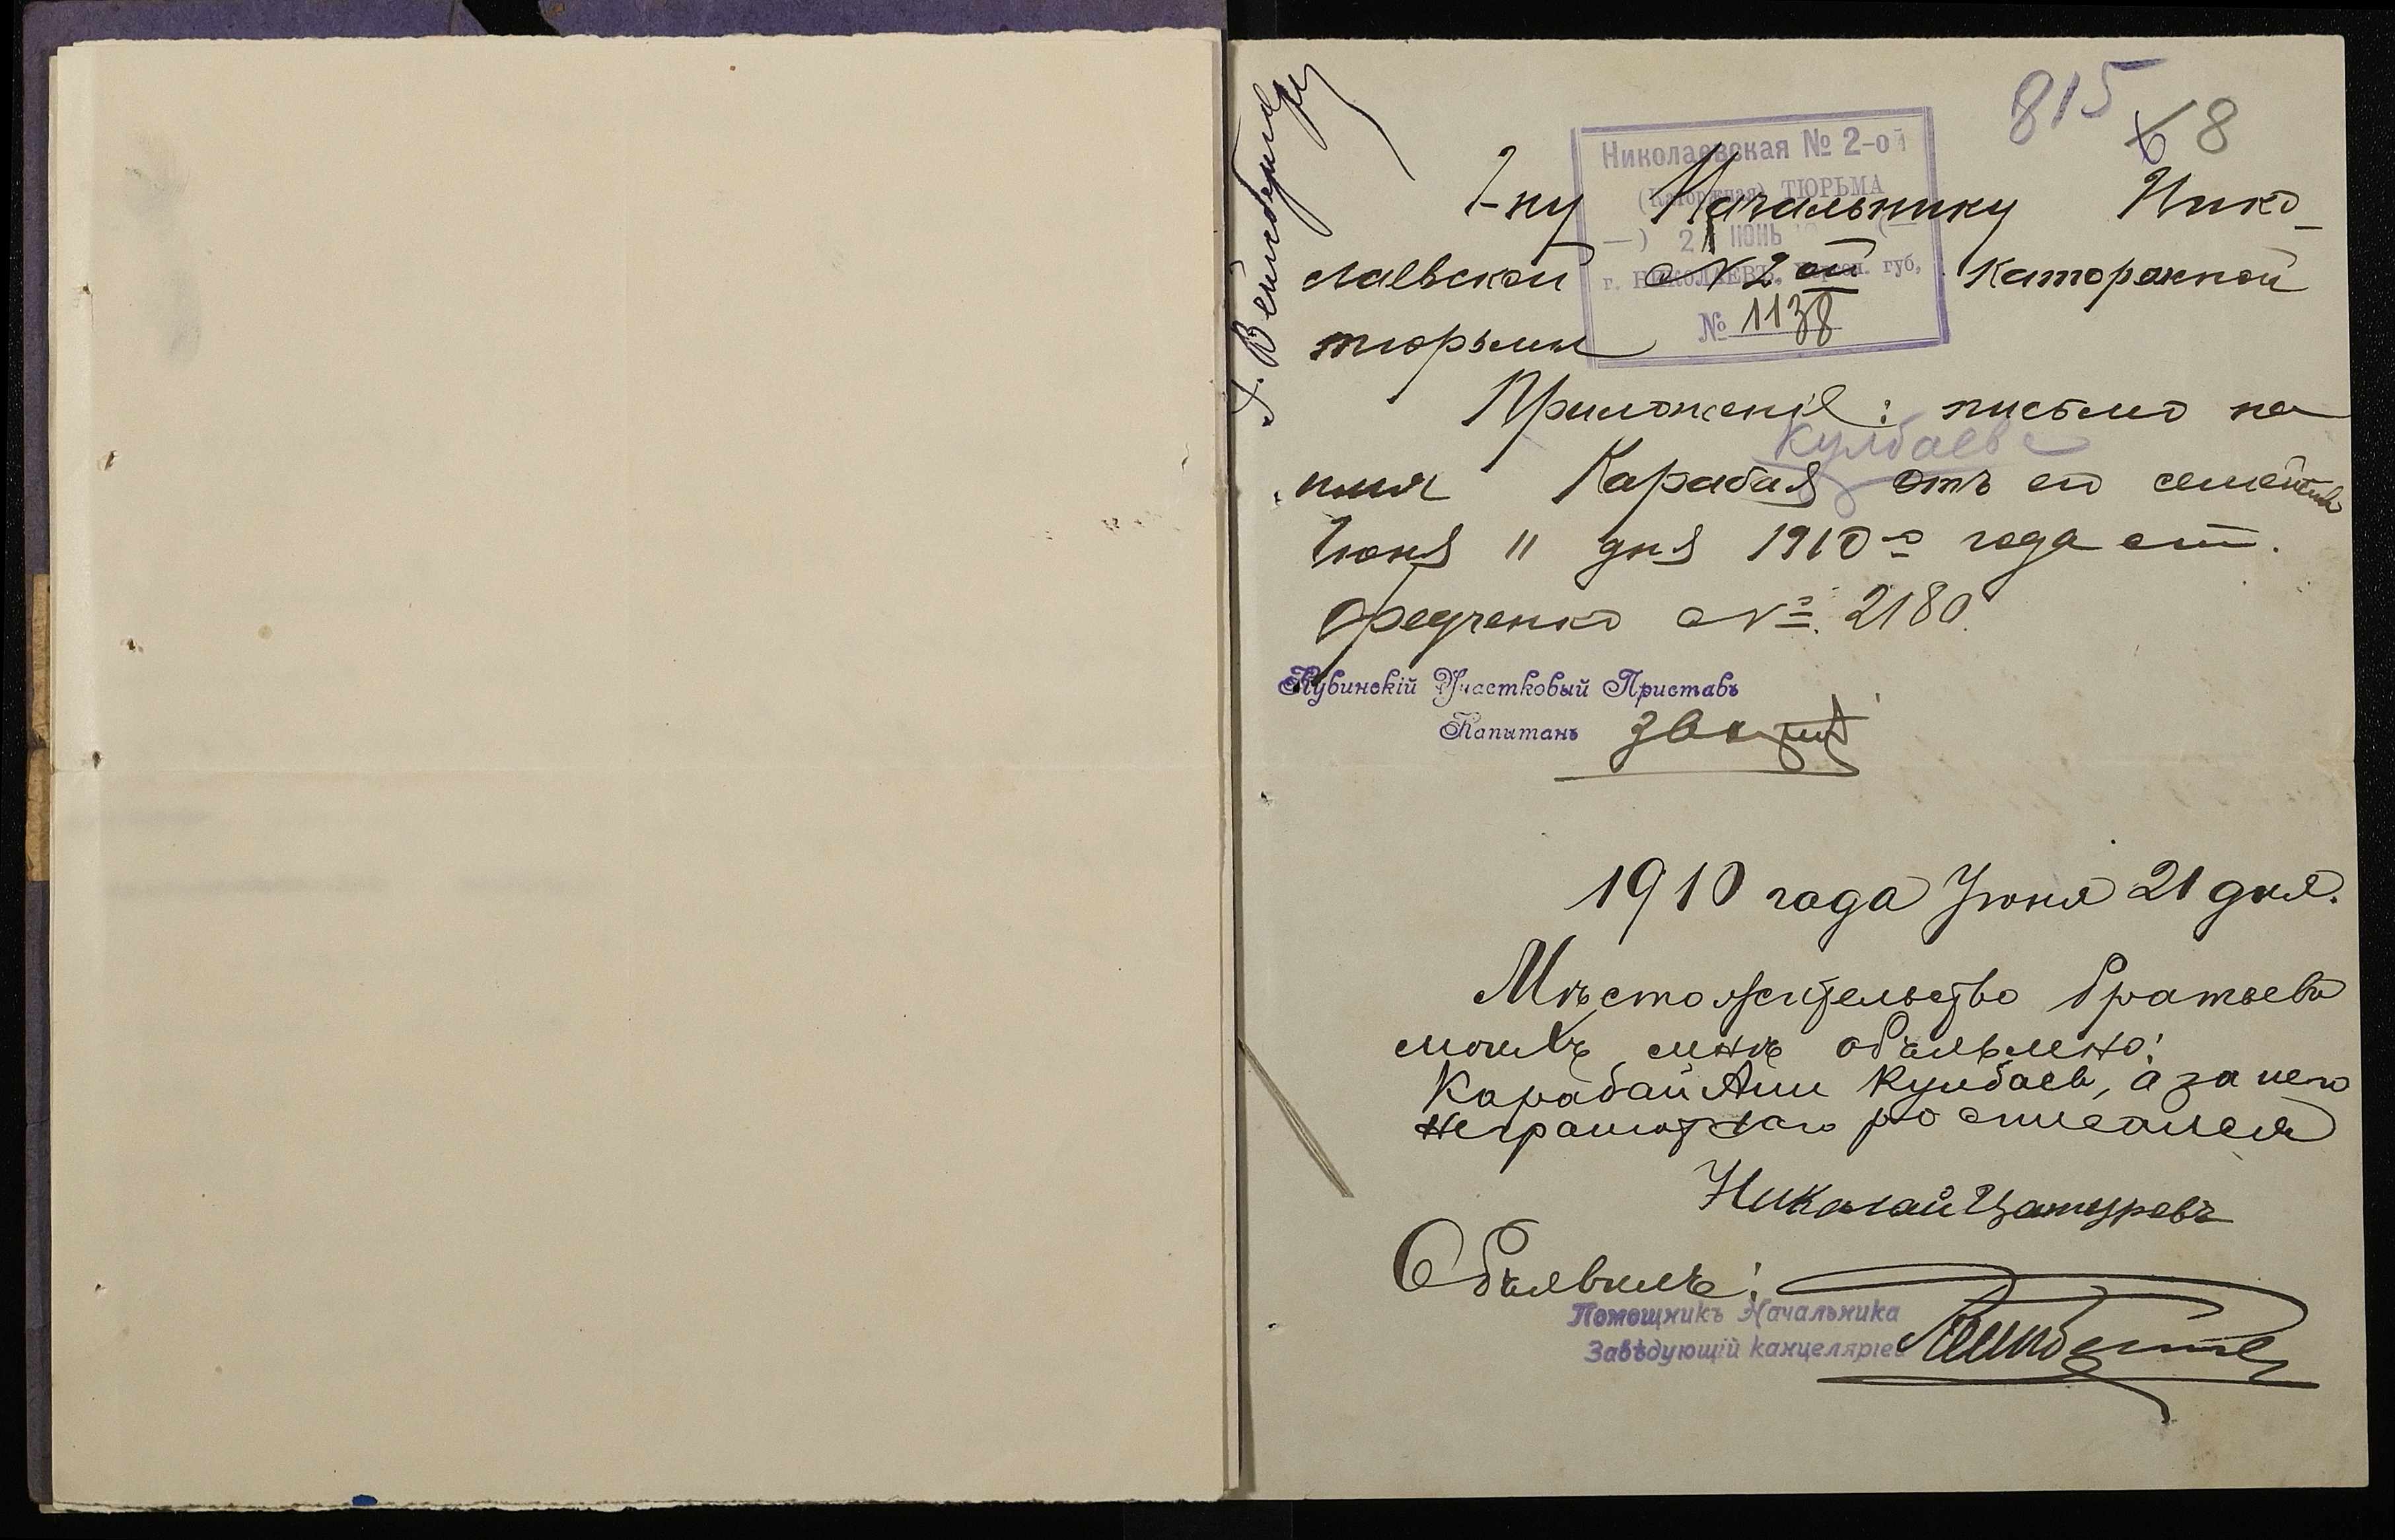 815
8
Г. Вейнбергеру
Николаевская № 2-ой
(Каторжная) ТЮРЬМА
21 ІЮНЬ
г. НИКОЛАЕВЪ, Херсон. губ.
№ 1138
Г-ну Начальнику Нико-
лаевской № 2 ой Каторжной
тюрьмы
Приложеніе: письмо на
Кулбаева
имя Карабая отъ его семейства
Іюня 11 дня 1910 го года ст.
Федченко № 2180.
Кувинскій Участковый Приставъ
Капитанъ
1910 года Іюня 21 дня.
Мѣстожительство братьевъ
моихъ мнѣ объявлено:
Карабай Аши Кулбаев, а за него
неграмотнаго росписался
Николай Цатуровъ
Объявилъ:
Помощникъ Начальника
Завѣдующій канцеляріей